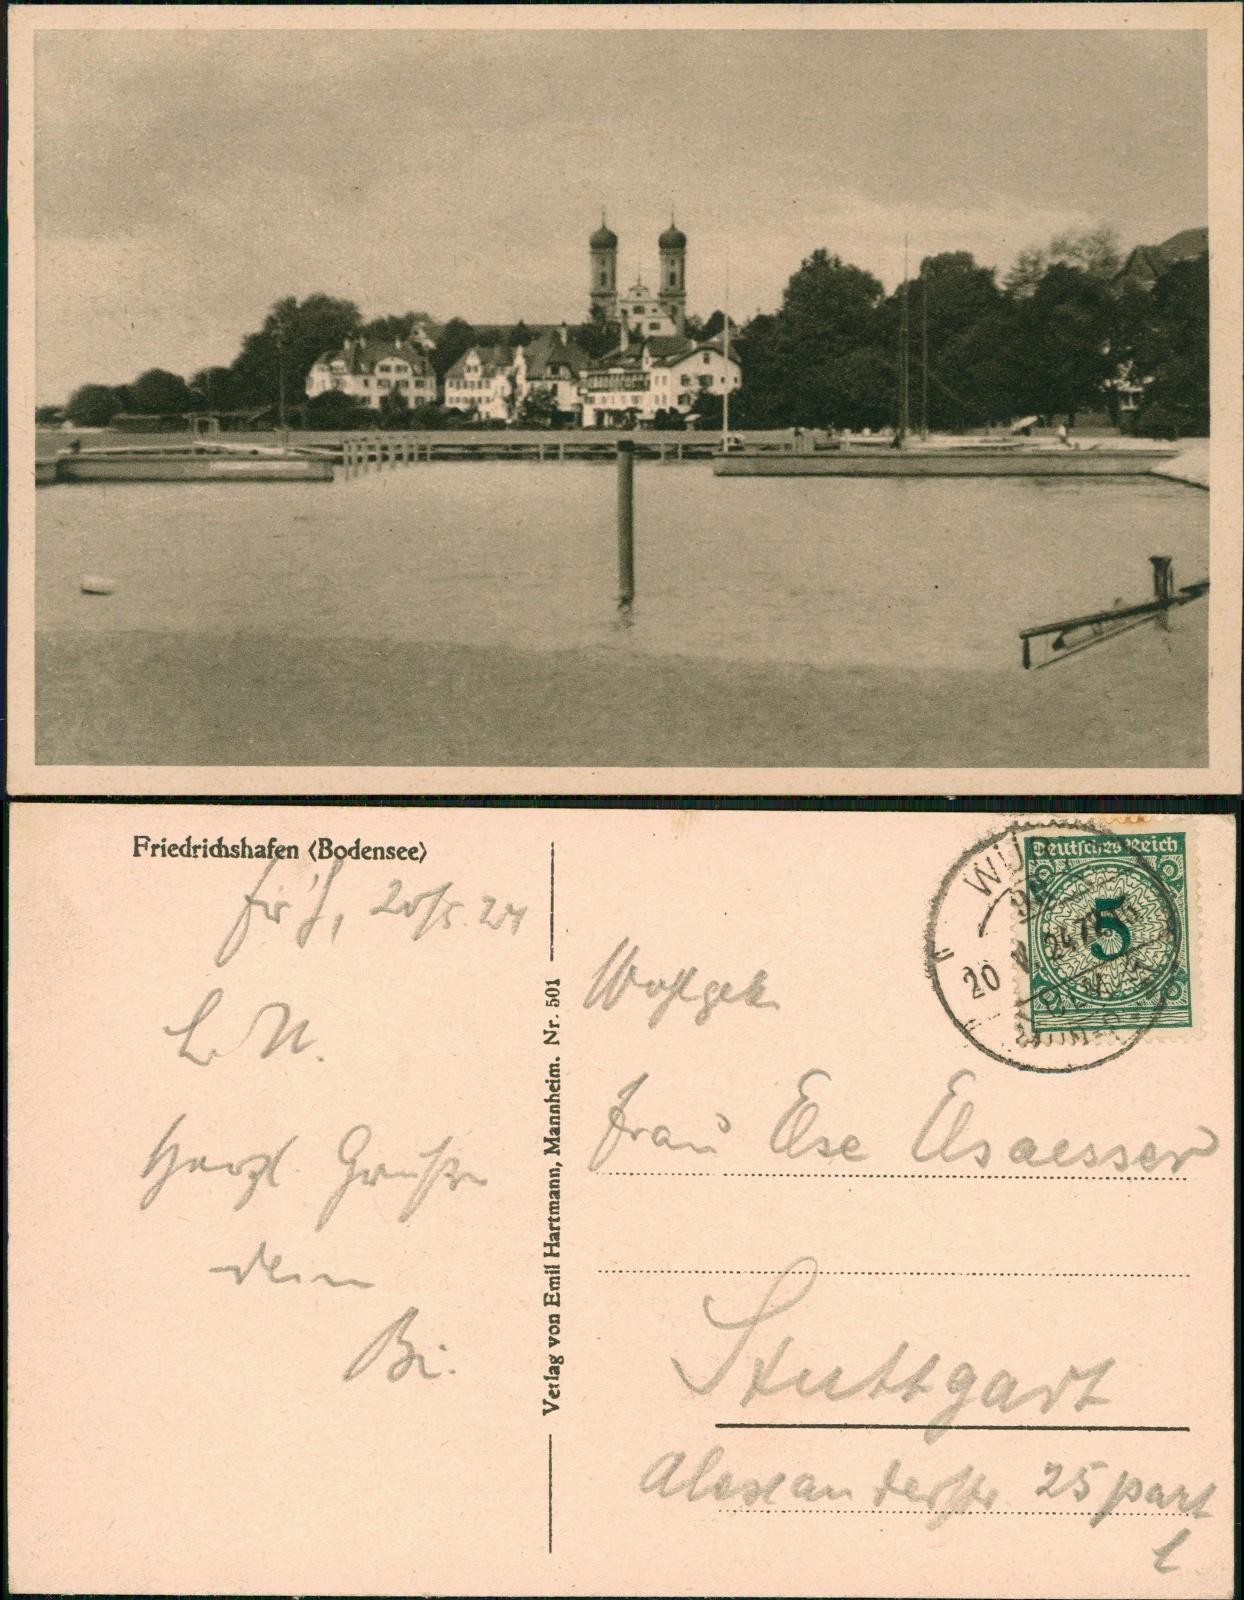 Friedrichshafen (Bodensee)
Fr'h, 20/5.24
L. N.
Herzl. Grüße
dein
Bi.
Verlag von Emil Hartmann, Mannheim. Nr. 501
Deutsches Reich
5
WÜR
20 24.7
Wohlgeb.
Frau Else Elsaesser
Stuttgart
Alexanderstr 25 part
l